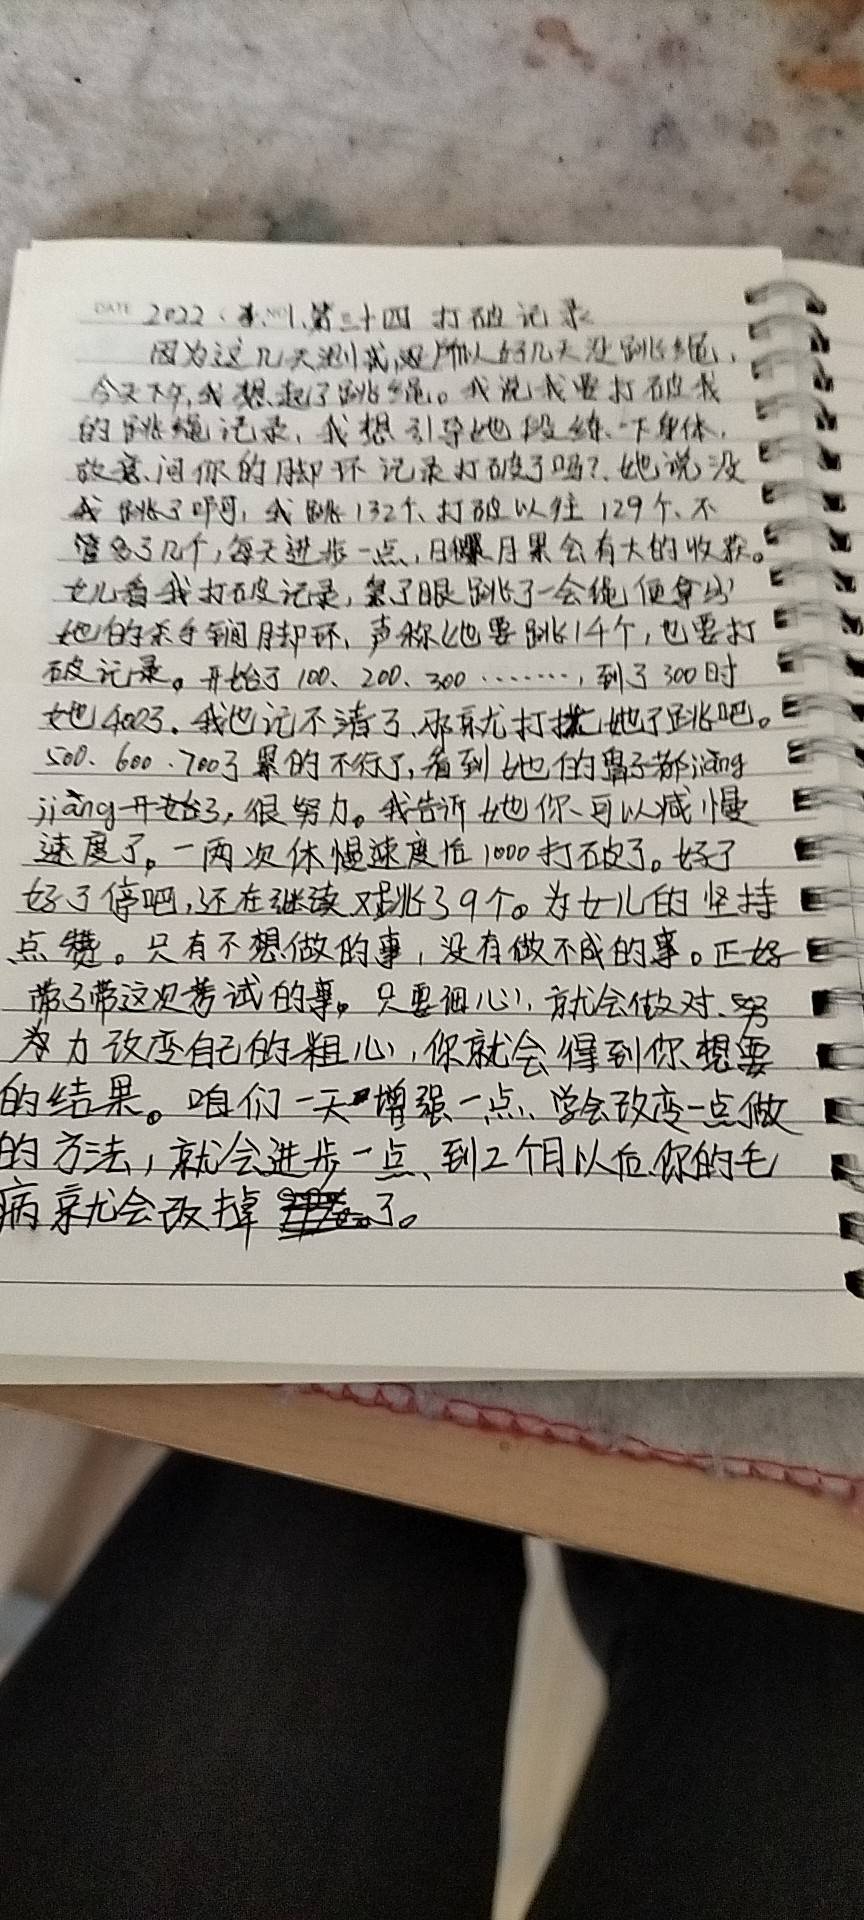 DATE 2022、 NO 1、第三十四 打破记录
因为这几天测试,所以好几天没跳绳,
今天下午,我想起了跳绳。我说我要打破我
的跳绳记录,我想引导她段练一下身体,
故意问你的脚环记录打破了吗?她说没
我跳了啊,我跳132个、打破以往129个、不
管多了几个,每天进步一点,日积月累会有大的收获。
女儿看我打破记录,急了眼跳了一会绳便拿出
她的杀手锏脚环,声称她要跳14个,也要打
破记录。开始了100、200、300………,到了300时
她400了。我也记不清了、那就打扰她了跳吧。
500、600、700了累的不行了,看到她的鼻子都jiāng
jiāng开始了,很努力。我告诉她你可以减慢
速度了。一两次休慢速度后1000打破了。好了
好了停吧,还在继续 跳了9个。为女儿的坚持
点赞。只有不想做的事,没有做不成的事。正好
带了带这次考试的事。只要细心,就会做对、努
力改变自己的粗心,你就会得到你想要
的结果。咱们一天增强一点、学会改变一点做
的方法,就会进步一点、到2个月以后你的毛
病就会改掉了。